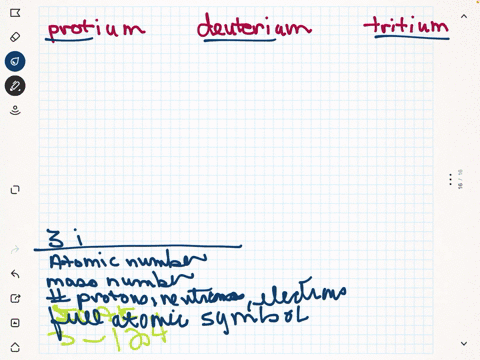 protium deuterium tritium
3 i
Atomic number
mass number
# protons, neutrons, electrons
full atomic symbol